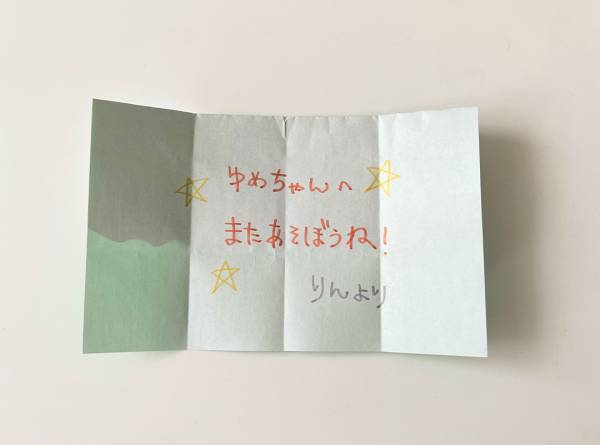 ゆめちゃんへ
またあそぼうね!
りんより